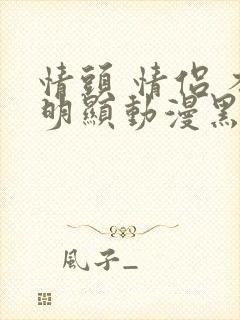 情頭 情侶
明顯動漫黑
風子_